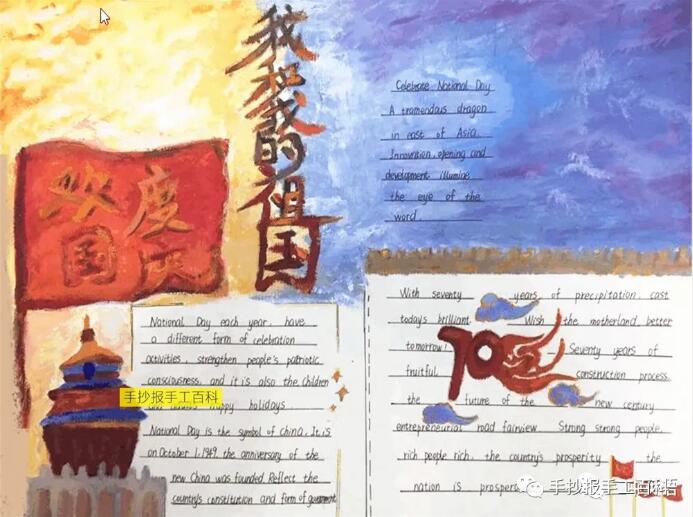 我和我的祖国
欢度
国庆
Celebrate National Day
A tramendous dragon
in east of Asia.
Innovation, opening and
development illumine
the eye of the
word.
National Day each year, have
a different form of celebration
activities, strengthen people's patriotic
consciousness, and it is also the children
happy holidays.
手抄报手工百科
National Day is the symbol of China, It is
on October 1, 1949, the anniversary of the
new China was founded Reflect the
country's constitution and form of government
With seventy years of precipitation, cast
today's brilliant. Wish the motherland better
tomorrow! Seventy years of
fruitful construction process,
the future of the new century
entrepreneurial road fairview. Strong strong people,
rich people rich, the country's prosperity the
nation is
70
手抄报手工